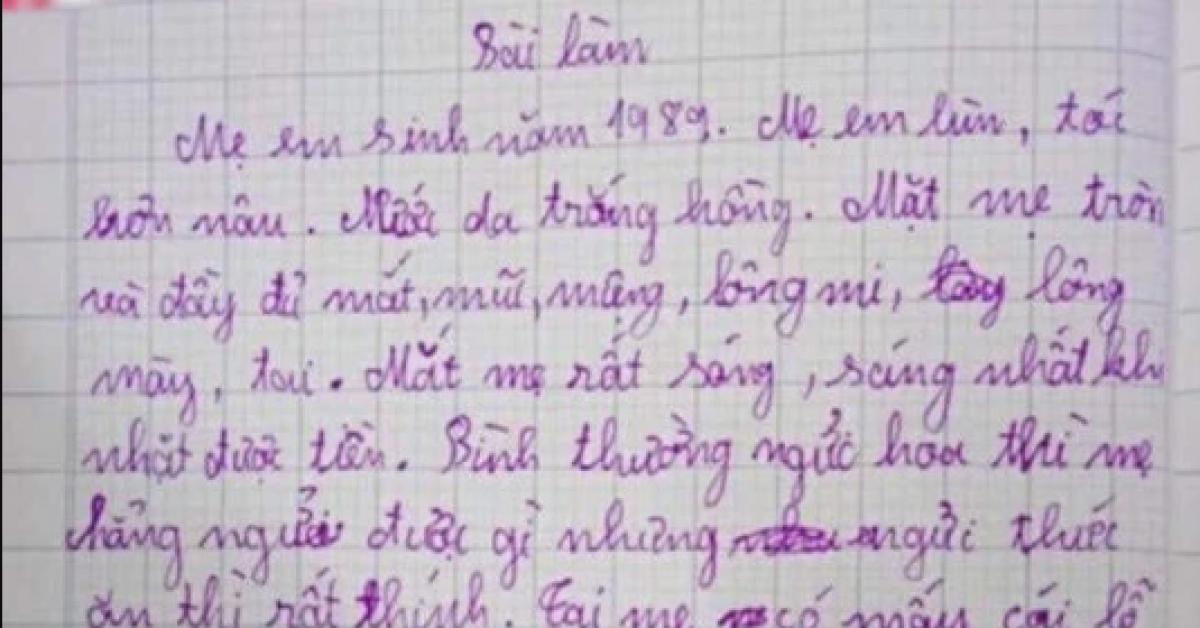 Bài làm
Mẹ em sinh năm 1989. Mẹ em lùn, tóc
xoăn nâu. Mước da trắng hồng. Mặt mẹ tròn
và đầy đủ mắt, mũi, miệng, lông mi, lông
mày, tai. Mắt mẹ rất sáng, sáng nhất khi
nhặt được tiền. Bình thường ngửi hoa thì mẹ
chẳng ngửi được gì nhưng ngửi thức
ăn thì rất thính. Tai mẹ có mấy cái lỗ